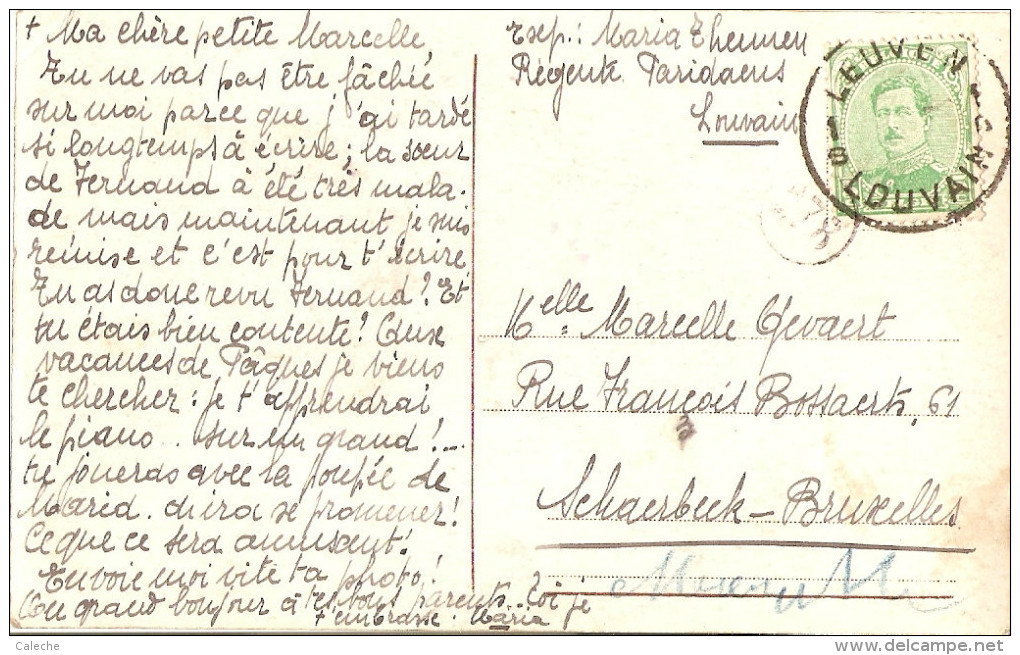 + Ma chère petite Marcelle,
Tu ne vas pas être fâchée
sur moi parce que j'ai tardé
si longtemps à écrire; la sœur
de Fernand à été très mala-
de mais maintenant je suis
remise et c'est pour t'écrire
Tu as donc revu Fernand? Et
tu étais bien contente? Aux
vacances de Pâques je viens
te chercher: je t'apprendrai
le piano.. sur un grand!...
tu joueras avec la poupée de
Maria. on ira se promener!
Ce que ce sera amusant!
Envoie moi vite ta photo!
Un grand bonjour à tes bons parents. Toi je
t'embrasse. Maria
Exep.: Maria Theunen
Régente Paridaens
Louvain
LEUVEN
LOUVAIN
Melle Marcelle Gevaert
Rue François Bossaerts, 61
Schaerbeek-Bruxelles
Caleche
delcampe.net